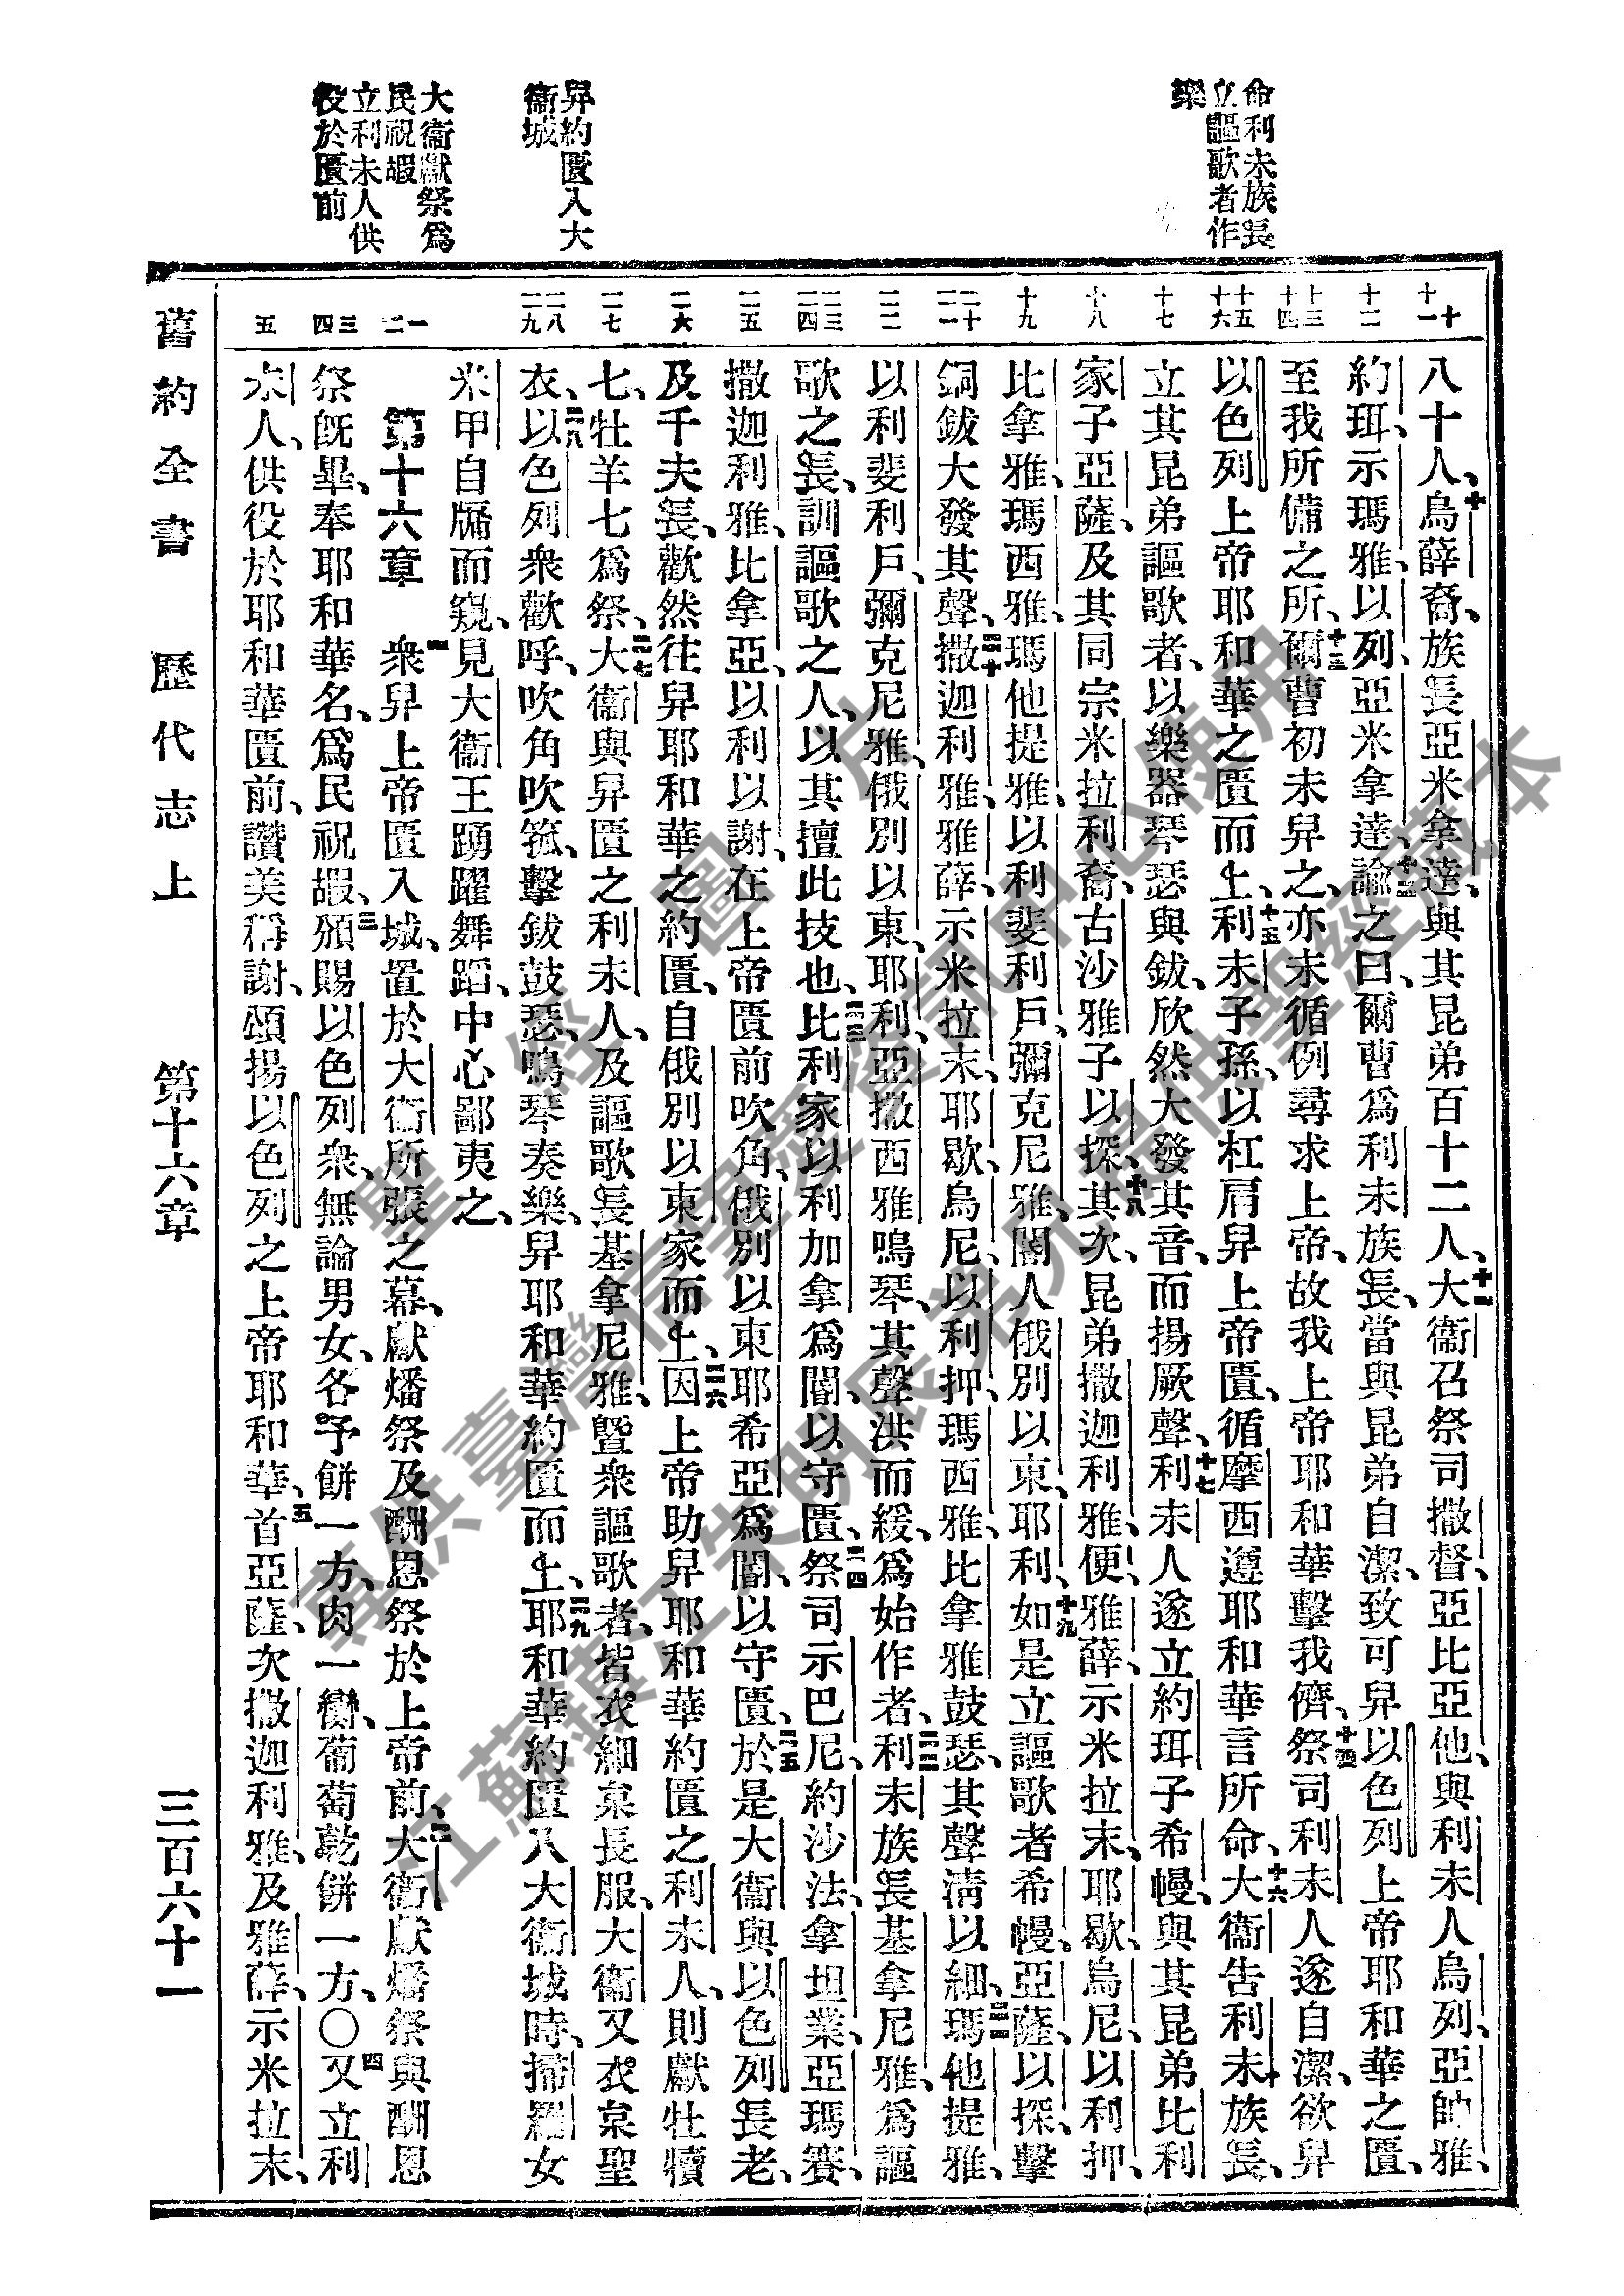 命利未族長
立謳歌者作
樂
舁約匱入大
衞城
大衞獻祭爲
民祝嘏
立利未人供
役於匱前
十 十一 十二 十三 十四 十五 十六 十七 十八 十九 二十 二一 二二 二三 二四 二五 二六 二七 二八 二九 一 二 三 四 五
八十人、十烏薛裔、族長亞米拿達、與其昆弟百十二人、十一大衞召祭司撒督、亞比亞他、與利未人烏列、亞帥雅、
約珥、示瑪雅、以列、亞米拿達、十二諭之曰、爾曹爲利未族長、當與昆弟自潔、致可舁以色列上帝耶和華之匱、
至我所備之所、十三爾曹初未舁之、亦未循例尋求上帝、故我上帝耶和華擊我儕、十四祭司利未人遂自潔、欲舁
以色列上帝耶和華之匱而上、十五利未子孫、以杠肩舁上帝匱、循摩西遵耶和華言所命、十六大衞告利未族長、
立其昆弟謳歌者、以樂器琴瑟與鈸、欣然大發其音、而揚厥聲、十七利未人遂立約珥子希幔、與其昆弟比利
家子亞薩、及其同宗米拉利裔、古沙雅子以探、十八其次、昆弟撒迦利雅、便、雅薛、示米拉末、耶歇、烏尼、以利押、
比拿雅、瑪西雅、瑪他提雅、以利斐利戶、彌克尼雅、閽人俄別以東、耶利、十九如是立謳歌者希幔、亞薩、以探、擊
銅鈸大發其聲、二十撒迦利雅、雅薛、示米拉末、耶歇、烏尼、以利押、瑪西雅、比拿雅鼓瑟、其聲淸以細、二一瑪他提雅、
以利斐利戶、彌克尼雅、俄別以東、耶利、亞撒西雅鳴琴、其聲洪而緩、爲始作者、二二利未族長基拿尼雅、爲謳
歌之長、訓謳歌之人、以其擅此技也、二三比利家以利加拿爲閽、以守匱、二四祭司示巴尼、約沙法、拿坦業、亞瑪賽、
撒迦利雅、比拿亞、以利以謝、在上帝匱前吹角、俄別以東耶希亞爲閽、以守匱、二五於是大衞與以色列長老、
及千夫長、歡然往舁耶和華之約匱、自俄別以東家而上、二六因上帝助舁耶和華約匱之利未人、則獻牡犢
七、牡羊七爲祭、二七大衞與舁匱之利未人、及謳歌長基拿尼雅、曁衆謳歌者、皆衣細枲長服、大衞又衣枲聖
衣、二八以色列衆歡呼、吹角吹箛、擊鈸鼓瑟、鳴琴奏樂、舁耶和華約匱而上、二九耶和華約匱入大衞城時、掃羅女
米甲自牖而窺、見大衞王踴躍舞蹈、中心鄙夷之、
第十六章　一衆舁上帝匱入城、置於大衞所張之幕、獻燔祭及酬恩祭於上帝前、二大衞獻燔祭與酬恩
祭旣畢、奉耶和華名、爲民祝嘏、三頒賜以色列衆、無論男女、各予餅一方、肉一臠、葡萄乾餅一方、〇四又立利
未人、供役於耶和華匱前、讚美稱謝、頌揚以色列之上帝耶和華、五首亞薩、次撒迦利雅、及雅薛、示米拉末、
舊約全書　歷代志上　第十六章　三百六十一
聖經圖片
專供臺灣信望愛資訊中心使用
江蘇鎭江朱明民弟兄提供聖經藏本